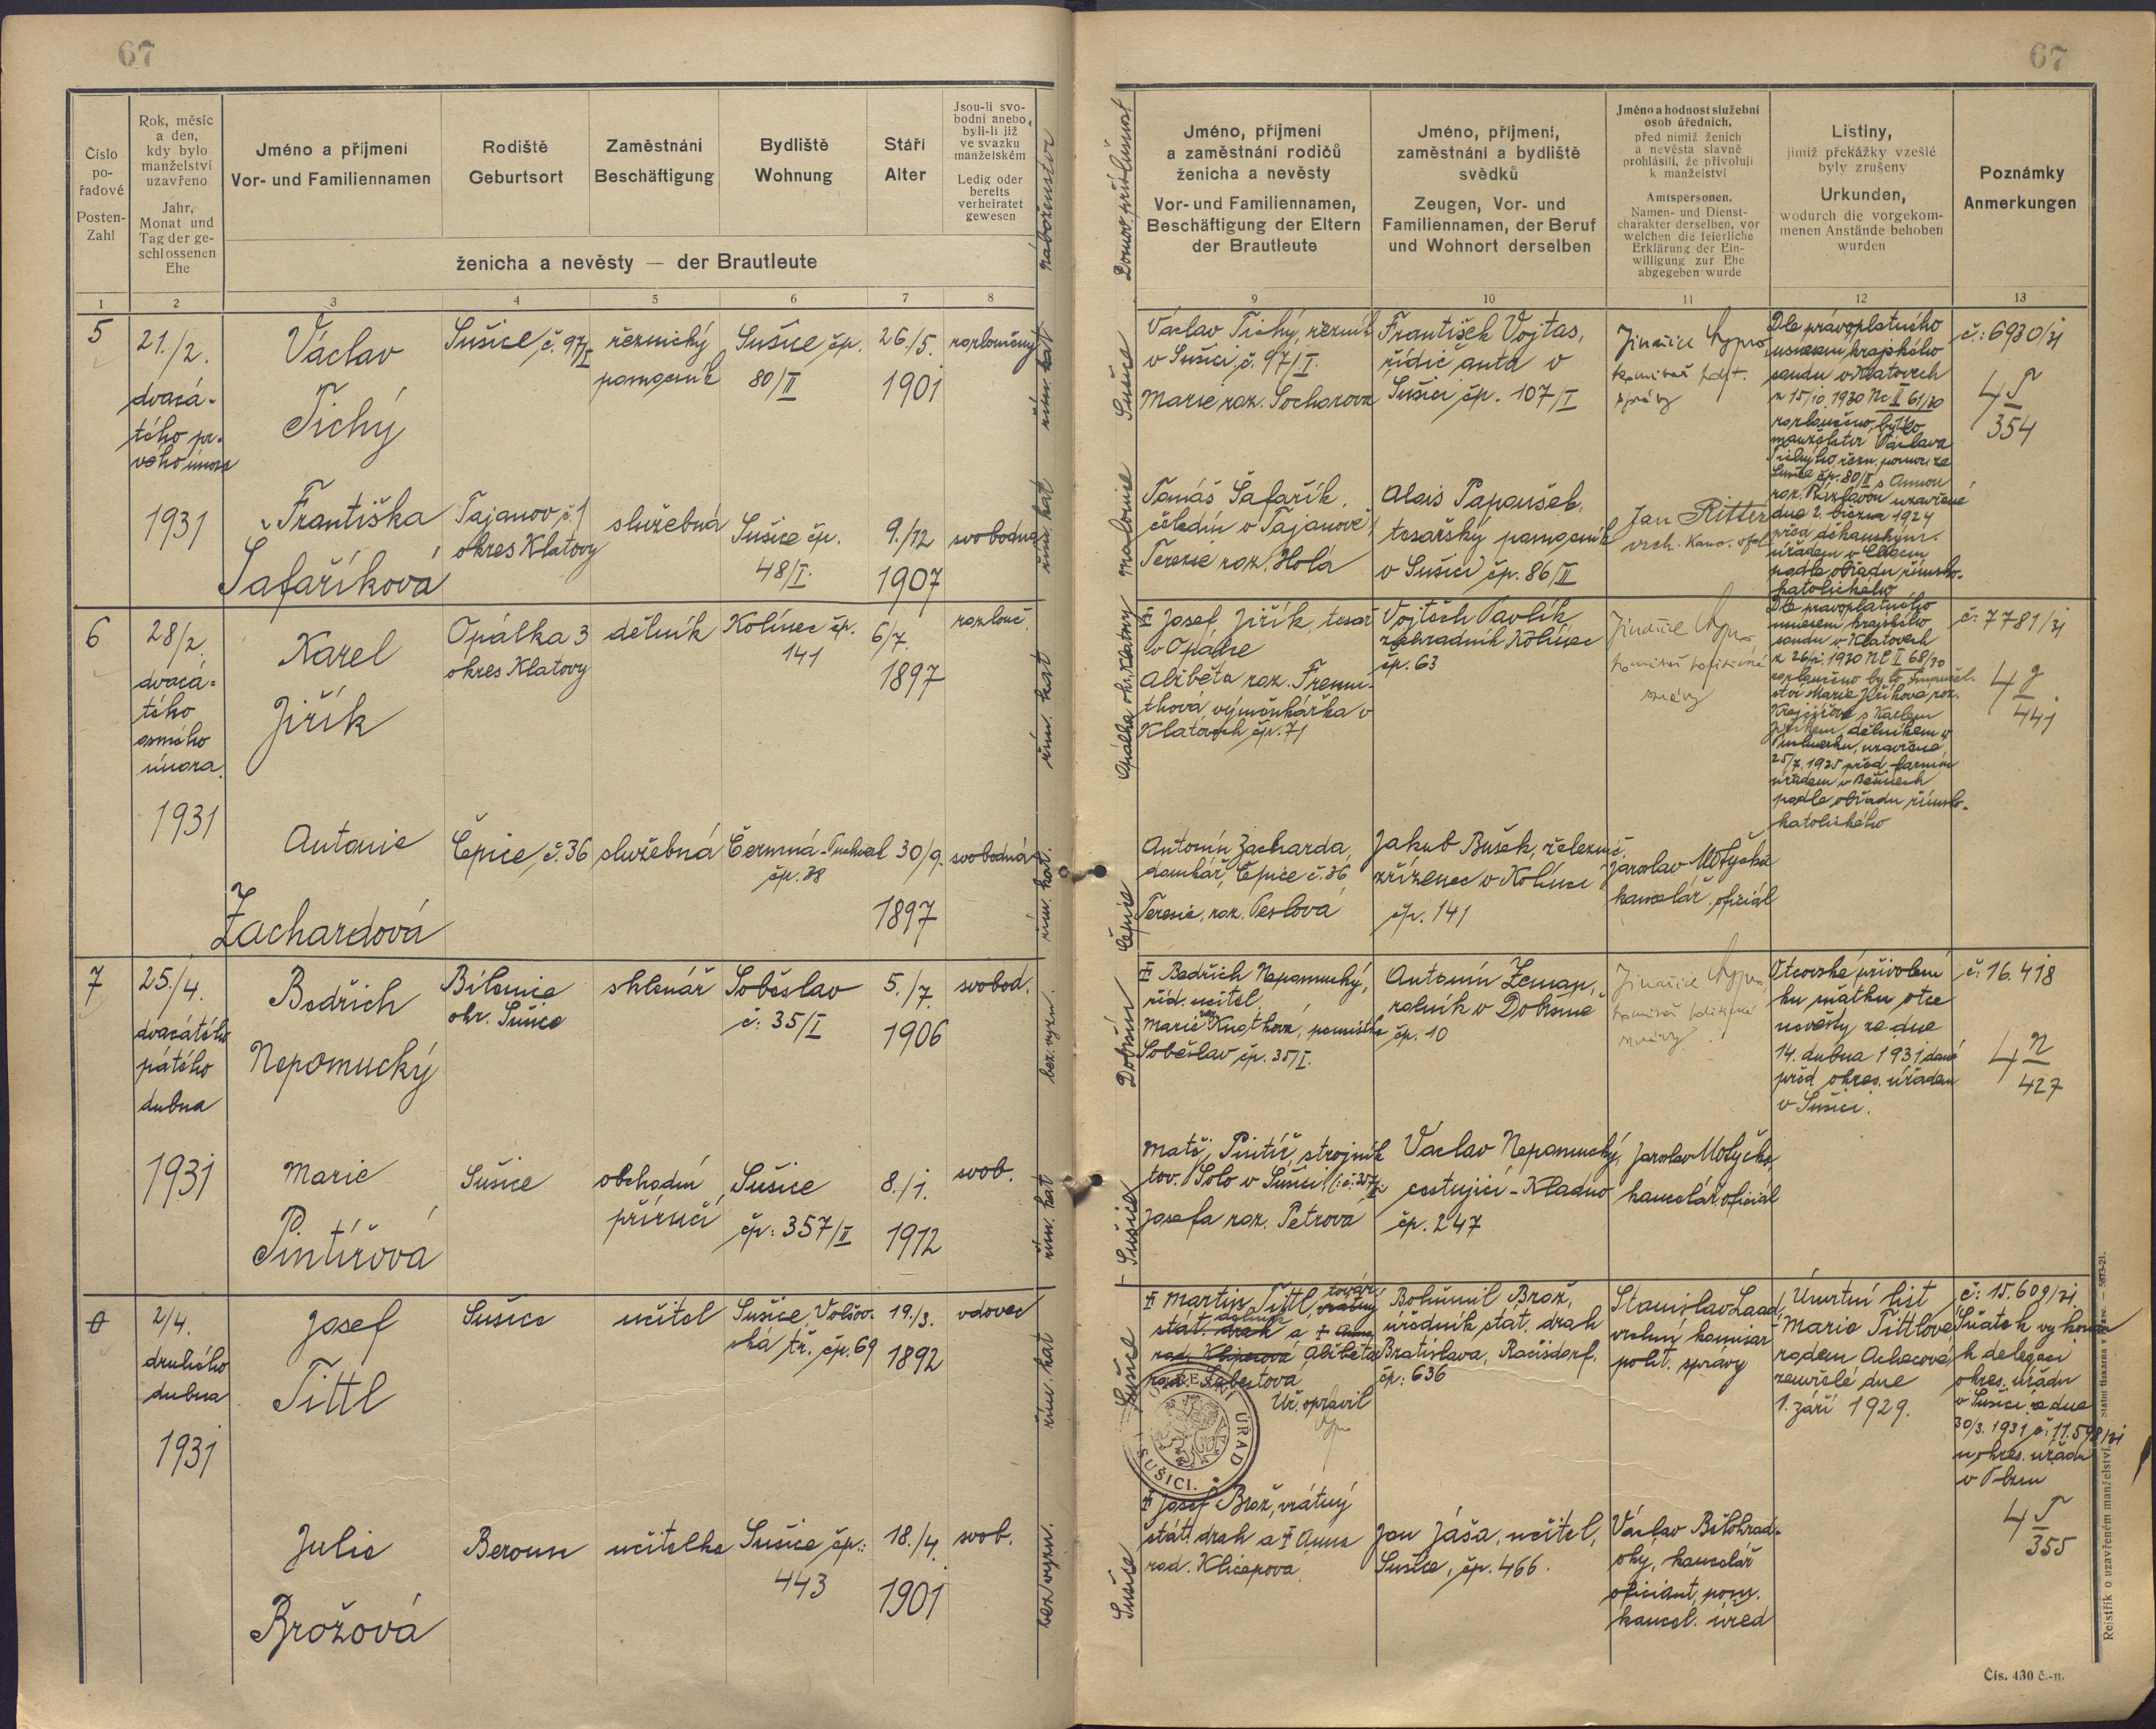 67
Číslo
po-
řadové
Posten-
Zahl
Rok, měsíc
a den,
kdy bylo
manželství
uzavřeno
Jahr,
Monat und
Tag der ge-
schlossenen
Ehe
Jméno a příjmení
Vor- und Familiennamen
Rodiště
Geburtsort
Zaměstnání
Beschäftigung
Bydliště
Wohnung
Stáří
Alter
Jsou-li svo-
bodni anebo
byli-li již
ve svazku
manželském
Ledig oder
bereits
verheiratet
gewesen
náboženství
ženicha a nevěsty — der Brautleute
1 2 3 4 5 6 7 8
5
21./2.
dvacá-
tého pr-
vého února
1931
Václav
Tichý
Sušice č. 97/I
řeznický
pomocník
Sušice čp.
80/II
26./5.
1901
rozloučený
řím. kat
Františka
Šafaříková
Tajanov č. 1
okres Klatovy
služebná
Sušice čp.
48/I.
9./12
1907
svobodná
řím. kat
6
28/2.
dvacá-
tého
osmého
února
1931
Karel
Jiřík
Opálka 3
okres Klatovy
dělník
Kolinec čp.
141
6/7.
1897
rozlouč.
řím. kat
Antonie
Zachardová
Čepice č. 36
služebná
čp. 38
30/9.
1897
svobodná
řím. kat.
7
25./4.
dvacátého
pátého
dubna
1931
Bedřich
Nepomucký
Bílenice
okr. Sušice
sklenář
Soběslav
č: 35/I
5./7.
1906
svobod.
bez vyzn.
Marie
Pintířová
Sušice
obchodní
příručí
Sušice
čp: 357/II
8./1.
1912
svob.
řím. kat
2/4.
druhého
dubna
1931
Josef
Tittl
Sušice
učitel
Sušice, Volšov-
ská tř. čp. 69
19./3.
1892
vdovec
řím. kat
Julie
Brožová
Beroun
učitelka
Sušice čp.:
443
18./4.
1901
svob.
bez vyzn.
67
Domov. příslušnost
Jméno, příjmení
a zaměstnání rodičů
ženicha a nevěsty
Vor- und Familiennamen,
Beschäftigung der Eltern
der Brautleute
Jméno, příjmení,
zaměstnání a bydliště
svědků
Zeugen, Vor- und
Familiennamen, der Beruf
und Wohnort derselben
Jméno a hodnost služební
osob úředních,
před nimiž ženich
a nevěsta slavně
prohlásili, že přivolují
k manželství
Amtspersonen,
Namen- und Dienst-
charakter derselben, vor
welchen die feierliche
Erklärung der Ein-
willigung zur Ehe
abgegeben wurde
Listiny,
jimiž překážky vzešlé
byly zrušeny
Urkunden,
wodurch die vorgekom-
menen Anstände behoben
wurden
Poznámky
Anmerkungen
9 10 11 12 13
Sušice
Václav Tichý, řezník
v Sušici č. 97/I.
Marie roz. Sochorová
František Vojtas,
řidič auta v
Sušici čp. 107/I
komisař polit.
správy
Dle právoplatného
usnesení krajského
soudu v Klatovech
z 15/10. 1930 Nc II 61/30
rozloučeno bylo
manželství Václava
Tichého, řezn. pomoc. ze
Sušice čp. 80/II s Annou
uzavřené
dne 2. března 1924
před děkanským
úřadem v
podle obřadu římsko-
katolického
č.: 6930/31
4 T
354
Malonice
Tomáš Šafařík,
čeledín v Tajanově
Terezie roz. Holá
Alois Papoušek,
tesařský pomocník
v Sušici čp. 86/II
Jan Ritter
vrch. kanc. ofic.
Opálka okr. Klatovy
Josef Jiřík, tesař
v Opálce
Alžběta roz. Fremu-
thová výmenkářka v
Klatovech čp. 71
Vojtěch Pavlík,
zahradník Kolinec
čp. 63
komisař politické
správy
Dle právoplatného
usnesení krajského
soudu v Klatovech
rozloučeno bylo manžel-
ství Marie Jiříkové roz.
Krejčíové s Karlem
Jiříkem, dělníkem v
uzavřené
25/7. 1925 před farním
úřadem v Běšinech
podle obřadu římsko-
katolického
č: 7781/31
4 J
441
Čepice
Antonín Zacharda,
domkář, Čepice č. 36
Terezie, roz. Teslová
Jakub Bušek, železnič.
zřízenec v Kolinci
čp. 141
Jaroslav Motyčka
kancelář. oficiál
Dobršín
Bedřich Nepomucký,
říd. učitel
Soběslav čp. 35/I.
Antonín Zeman,
rolník v Dobršíně
čp. 10
komisař politické
správy
Otcovské přivolení
ku sňatku otce
nevěsty ze dne
14. dubna 1931 dané
před okres. úřadem
v Sušici.
č: 16.418
4 N
427
Sušice
Matěj Pintíř, strojník
tov. Solo v Sušici
Josefa roz. Petrová
Václav Nepomucký,
cestující - Kladno
čp. 247
Jaroslav Motyčka
kancelář. oficiál
Sušice
Martin Tittl,
stát. drah a Anna
rod. Klicperová Alžběta
Úř. opravil
OKRESNÍ ÚŘAD
SUŠICI.
Bohumil Brož,
úředník stát. drah
Bratislava, Račisdorf,
čp: 636
Stanislav
vrchní komisař
polit. správy
Úmrtní list
Marie Tittlové
zemřelé dne
1. září 1929.
č: 15.609/31
Sňatek vykonán
k delegaci
okres. úřadu
v Sušici ze dne
30/3. 1931 č: 11.598/31
u okres. úřadu
v Plzni
4 T
355
Sušice
Josef Brož, vrátný
stát. drah a Anna
rod. Klicperová
Jan Jáša, učitel,
Sušice, čp. 466.
Václav Bělohrad-
ský, kancelář
oficiant, pom.
kancel. úřed
Rejstřík o uzavřeném manželství.
Čís. 430 č.-n.